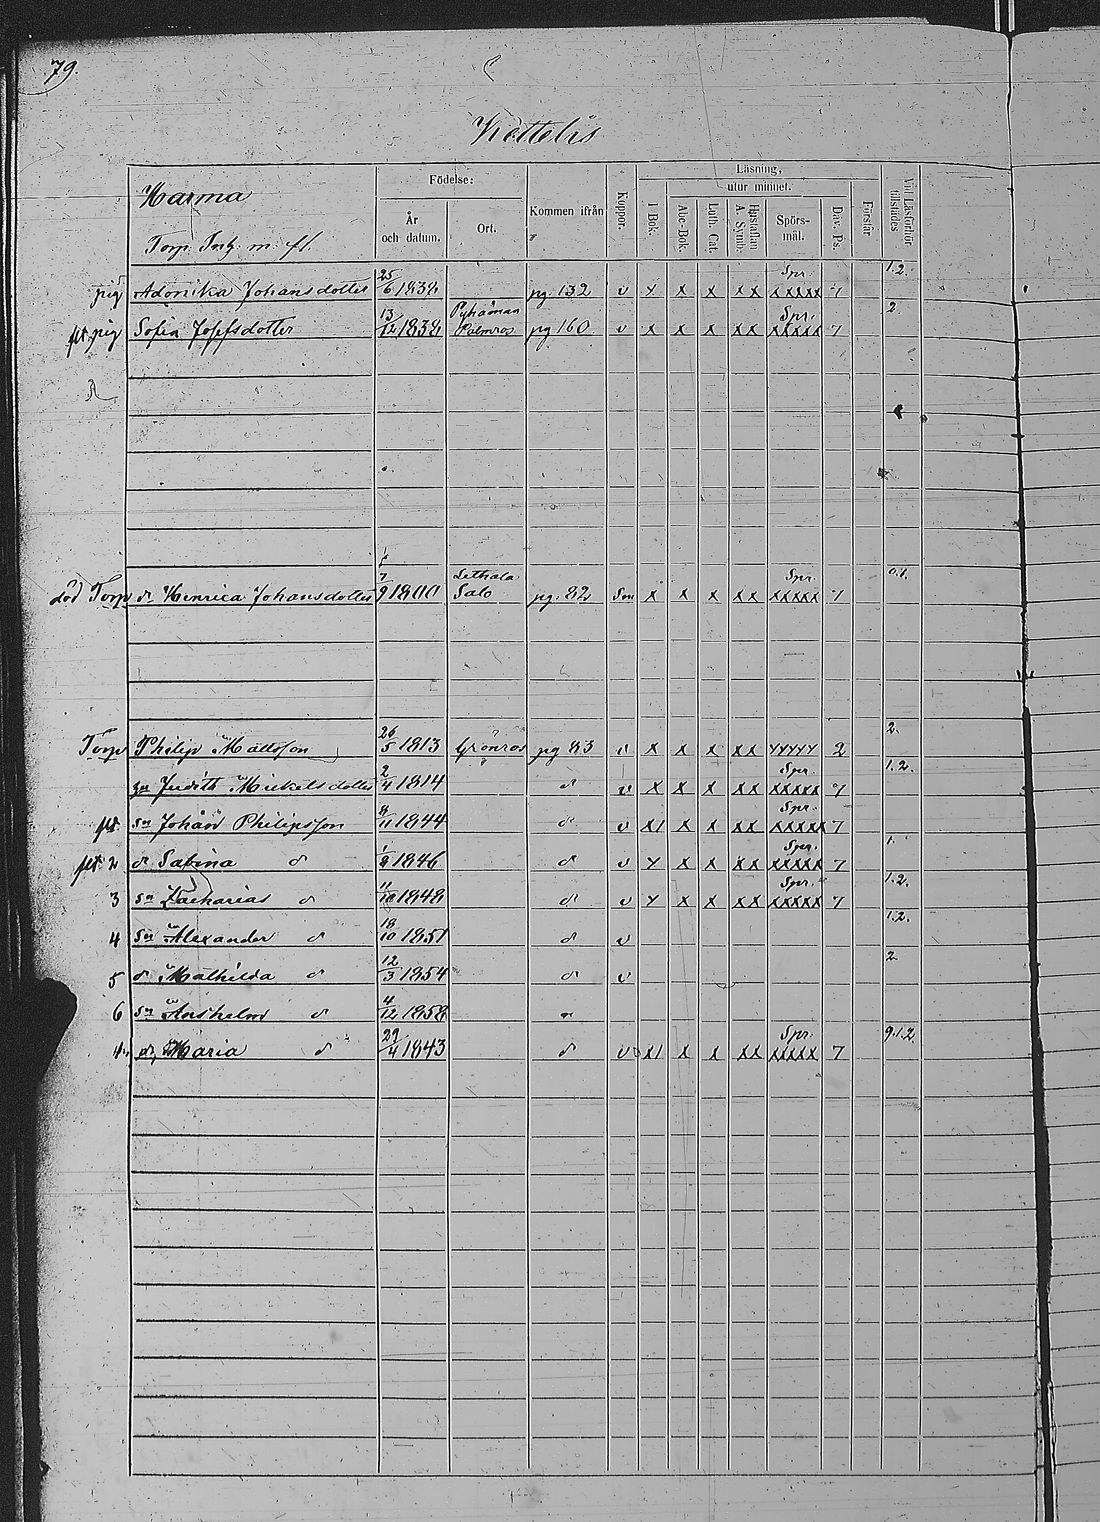 79.
Kettelis
Harma
Torp. Inh. m. fl.
Födelse:
År och datum.
Ort.
Kommen ifrån
Koppor.
Läsning,
utur minnet.
I Bok.
Abc-Bok.
Luth. Cat.
Hustaflan A. Symb.
Spörs-mål.
Dav. Ps.
Förstår
Vid Läsförhör tillstädes
pig Adonika Johansdotter 25/6 1838 pg. 132 v x x x xx Spr. xxxxx 7 1.2.
flt. pig Sofia Josefsdotter 13/12 1838 Pyhämaa Palmros pg 160 v x x x xx Spr. xxxxx 7 2.
död Torp Henrica Johansdotter 7/9 1800 Lethala Salo pg. 82 x x x xx Spr. xxxxx 7 0.1.
Torp Philip Mattsson 26/5 1813 Grönros pg 83 v x x x xx xxxxx 2 2.
Judith Mickelsdotter 2/4 1814 d v x x x xx Spr. xxxxx 7 1.2.
flt sn Johan Philipsson 8/11 1844 d v xi x x xx Spr. xxxxx 7
flt 2 d Sabina d 1/9 1846 d v x x x xx Spr. xxxxx 7 1.
3 sn Zacharias d 11/10 1848 d v x x x xx Spr. xxxxx 7 1.2.
4 sn Alexander d 18/10 1851 d v 1.2.
5 d Mathilda d 12/3 1854 d v 2
6 sn Anshelm d 4/12 1858
d. Maria d 29/4 1843 d v xi x x xx Spr. xxxxx 7 9.1.2.